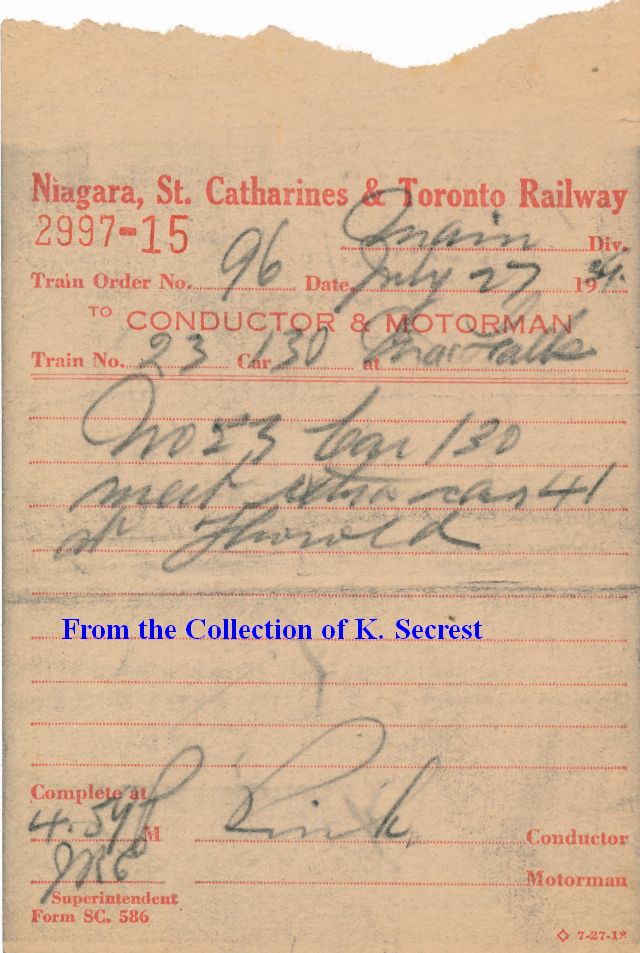 Niagara, St. Catharines & Toronto Railway
2997-15
Main Div.
Train Order No. 96 Date, July 27 19
TO CONDUCTOR & MOTORMAN
Train No. 23 Car 130 at Falls
No 23 Car 130
meet extra car 41
at Thorold
From the Collection of K. Secrest
Complete at
4.54 P M Pink Conductor
Motorman
Superintendent
Form SC. 586
7-27-18